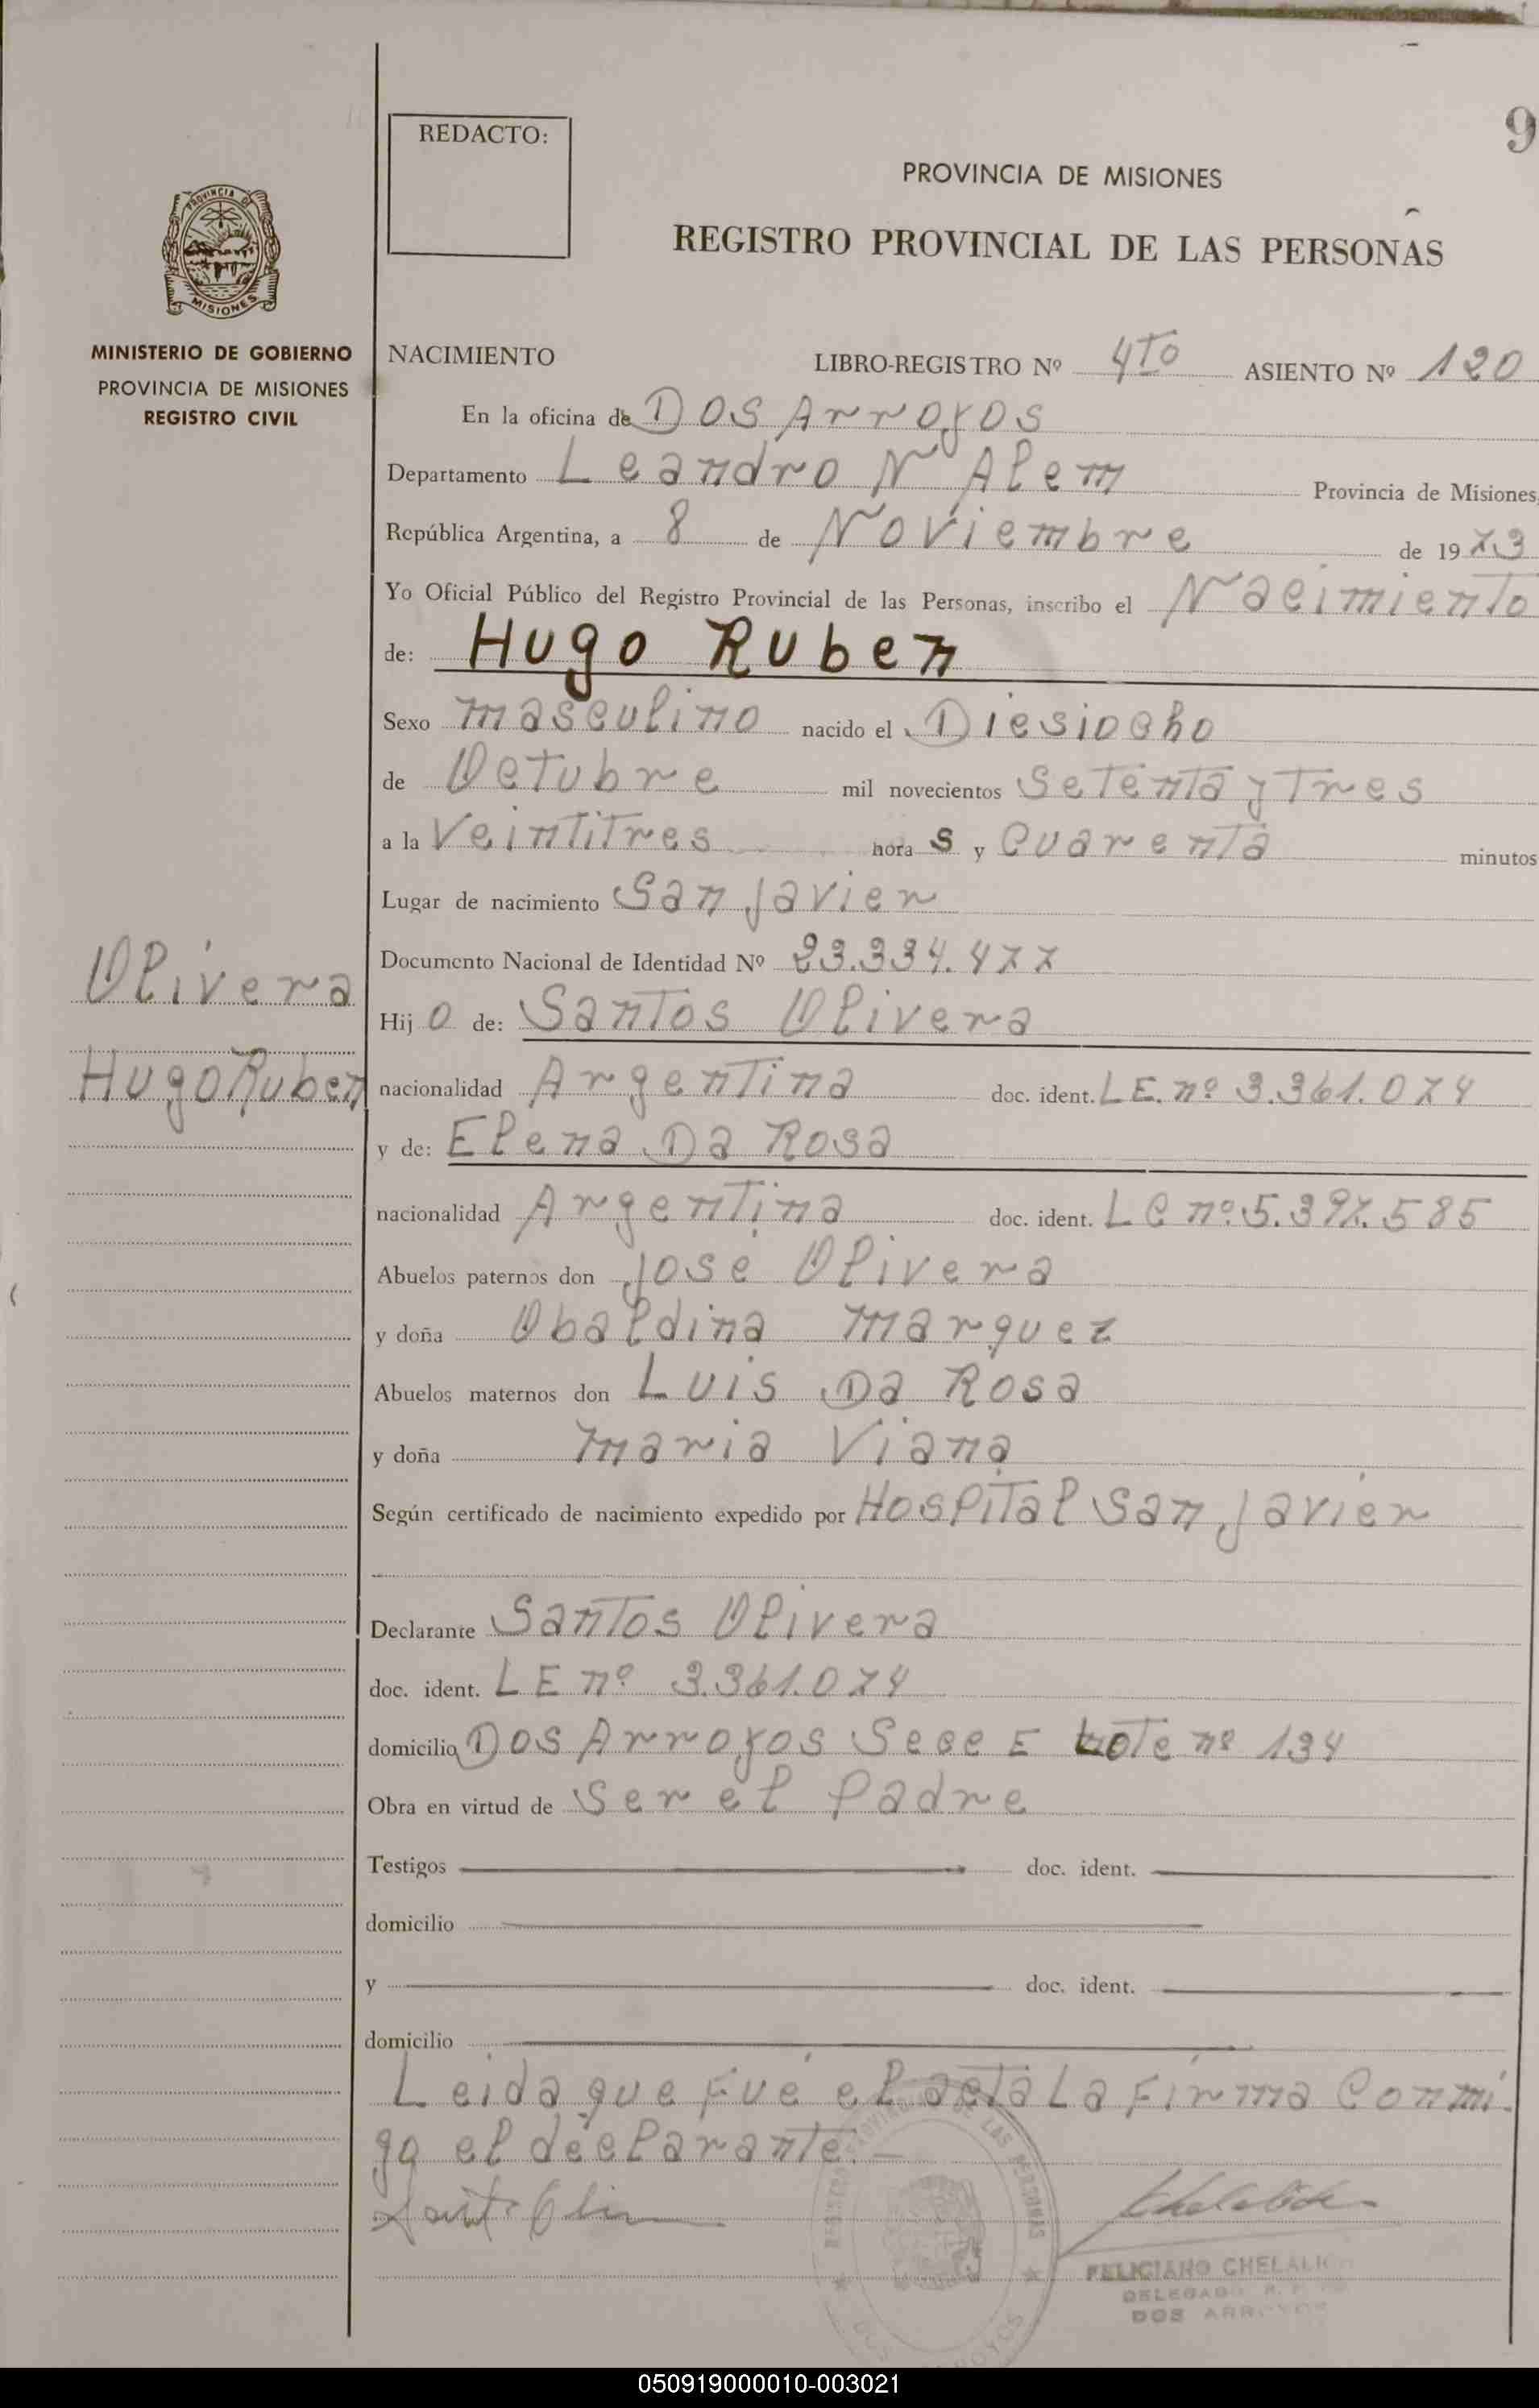 9
REDACTO:
PROVINCIA DE MISIONES
REGISTRO PROVINCIAL DE LAS PERSONAS
PROVINCIA DE
MISIONES
MINISTERIO DE GOBIERNO
PROVINCIA DE MISIONES
REGISTRO CIVIL
NACIMIENTO LIBRO-REGISTRO Nº 4TO ASIENTO Nº 120
En la oficina de DOS Arroyos
Departamento Leandro N Alem Provincia de Misiones,
República Argentina, a 8 de Noviembre de 1973
Yo Oficial Público del Registro Provincial de las Personas, inscribo el Nacimiento
de: Hugo Ruben
Sexo masculino nacido el Diesiocho
de Octubre mil novecientos Setenta y Tres
a la Veintitres hora s y Cuarenta minutos
Lugar de nacimiento San Javier
Documento Nacional de Identidad Nº 23.334.477
Olivera
Hugo Ruben
Hij o de: Santos Olivera
nacionalidad Argentina doc. ident. LE. nº 3.361.074
y de: Elena Da Rosa
nacionalidad Argentina doc. ident. LC nº 5.397.585
Abuelos paternos don José Olivera
y doña Obaldina Marquez
Abuelos maternos don Luis Da Rosa
y doña Maria Viana
Según certificado de nacimiento expedido por Hospital San Javier
Declarante Santos Olivera
doc. ident. LE nº 3.361.074
domicilio Dos Arroyos Secc E Lote nº 134
Obra en virtud de Ser el Padre
Testigos doc. ident.
domicilio
y doc. ident.
domicilio
Leida que Fué el acta La Firma Conmi-
go el declarante.-
REGISTRO PROVINCIAL DE LAS PERSONAS
DOS ARROYOS
FELICIANO CHELALICH
DELEGADO R. P.
DOS ARROYOS
050919000010-003021